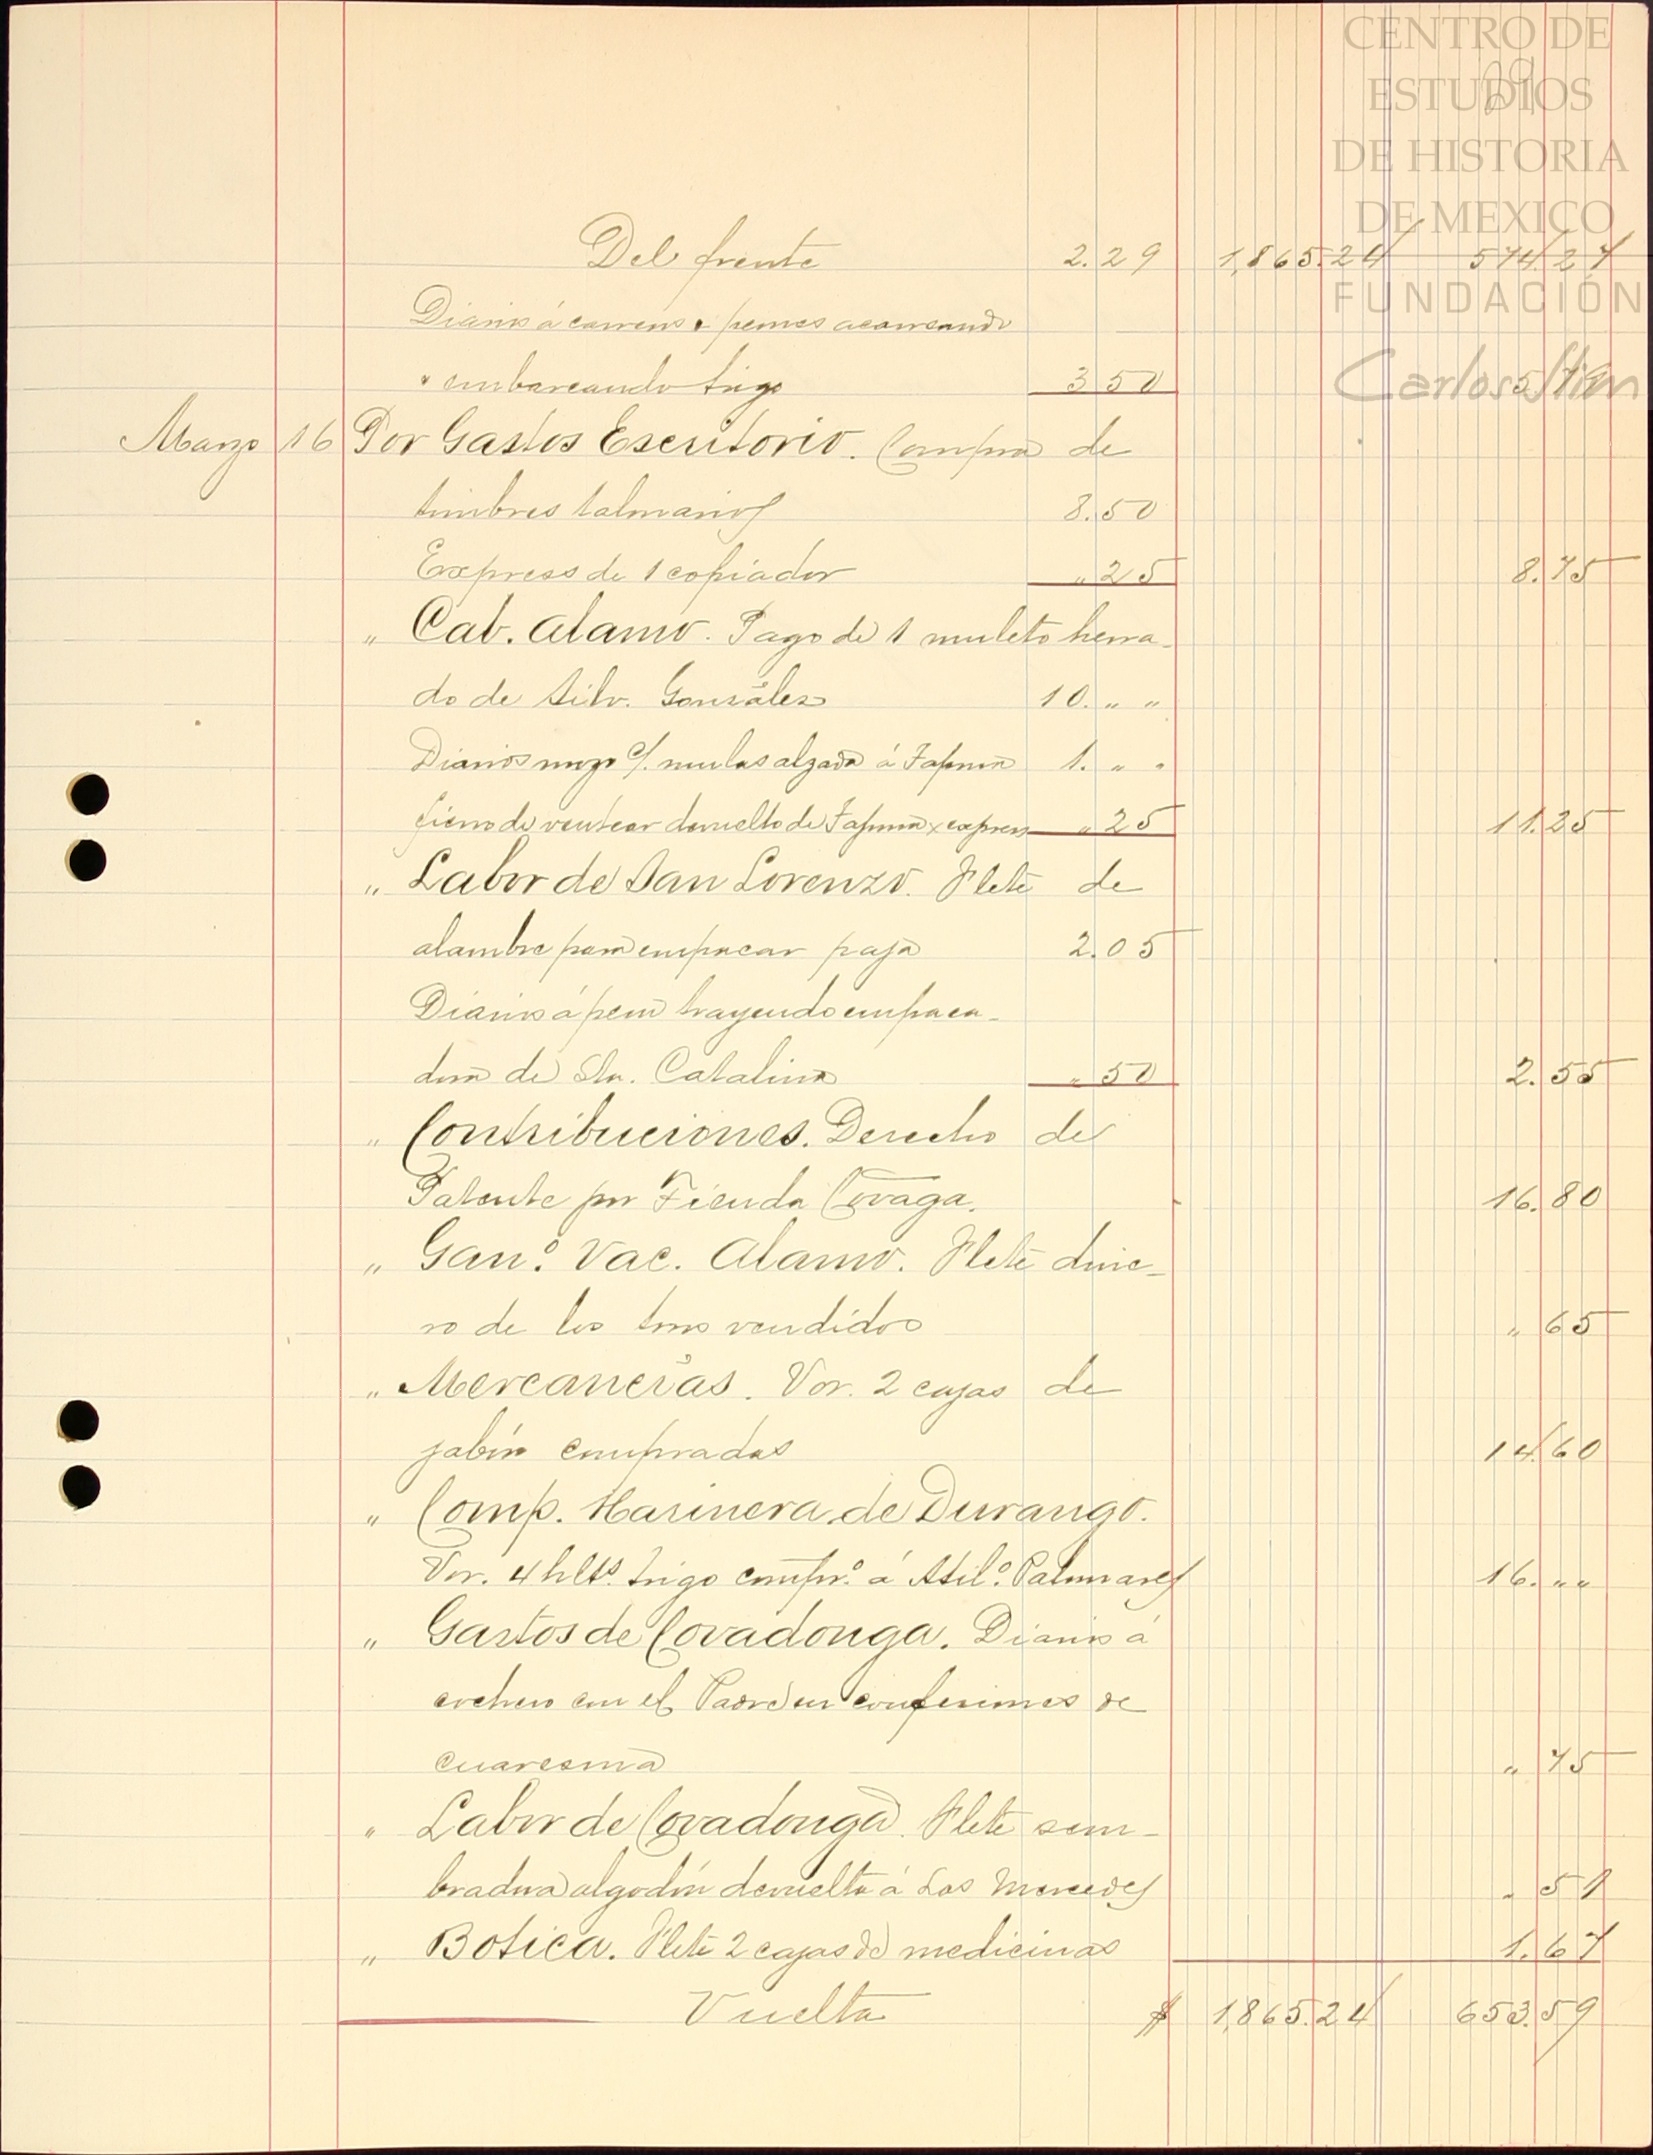 CENTRO DE
ESTUDIOS
DE HISTORIA
DE MEXICO
FUNDACIÓN
Carlos Slim
29
Del frente 2.29 1,865.24 574.27
Diarios á carreros y peones acarreando
y embarcando trigo 3 50 5.79
Marzo 16 Por Gastos Escritorio. Compra de
timbres talonarios 8.50
Express de 1 copiador " 25 8.75
" Cab. Alamo. Pago de 1 muleto herra-
do de Silv. González 10. " "
Diarios mozo c/. mulas alzada á 1. " "
fierro de ventear devuelto de x express " 25 11.25
" Labor de San Lorenzo. Flete de
alambre para empacar paja 2.05
Diarios á peon trayendo empaca-
dora de Sta. Catalina " 50 2.55
" Contribuciones. Derecho de
Patente por Tienda Covaga. 16.80
" Gan.º Vac. Alamo. Flete dine-
ro de los toros vendidos " 65
" Mercancías. Vor. 2 cajas de
jabón compradas 14.60
" Comp. Harinera de Durango.
Vor. 4 hlts. trigo compr.º á Atil.º Palomares 16. " "
" Gastos de Covadonga. Diarios á
cochero con el Padre en confesiones de
cuaresma " 75
" Labor de Covadonga. Flete sem-
bradora algodón devuelta á Las Mercedes " 51
" Botica. Flete 2 cajas de medicinas 1.67
Vuelta $ 1,865.24 653.59